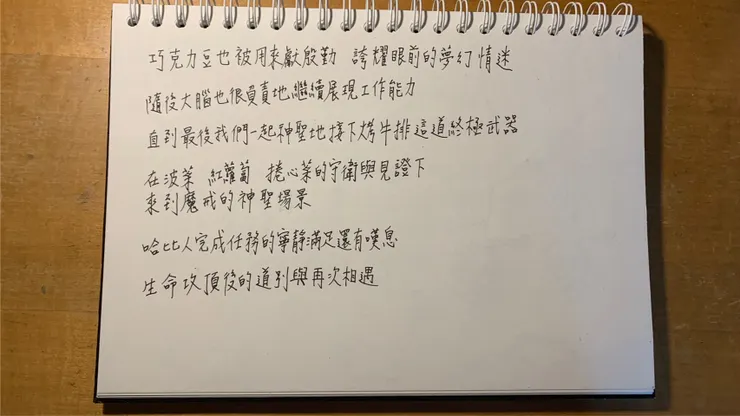 巧克力豆也被用來獻殷勤 誇耀眼前的夢幻情迷
隨後大腦也很負責地繼續展現工作能力
直到最後我們一起神聖地接下烤牛排這道終極武器
在波菜 紅蘿蔔 捲心菜的守衛與見證下
來到魔戒的神聖場景
哈比人完成任務的寧靜滿足還有嘆息
生命攻頂後的道別與再次相遇